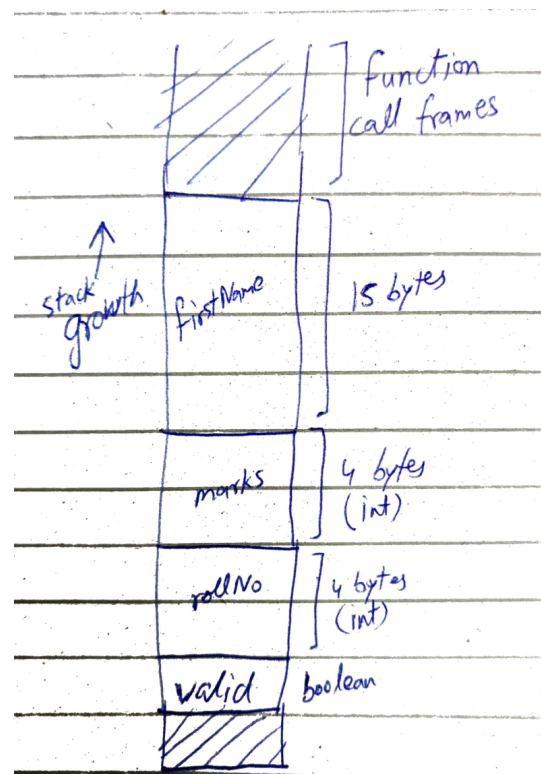 function
call frames
stack
growth
firstName
15 bytes
marks
4 bytes
(int)
rollNo
4 bytes
(int)
valid
boolean